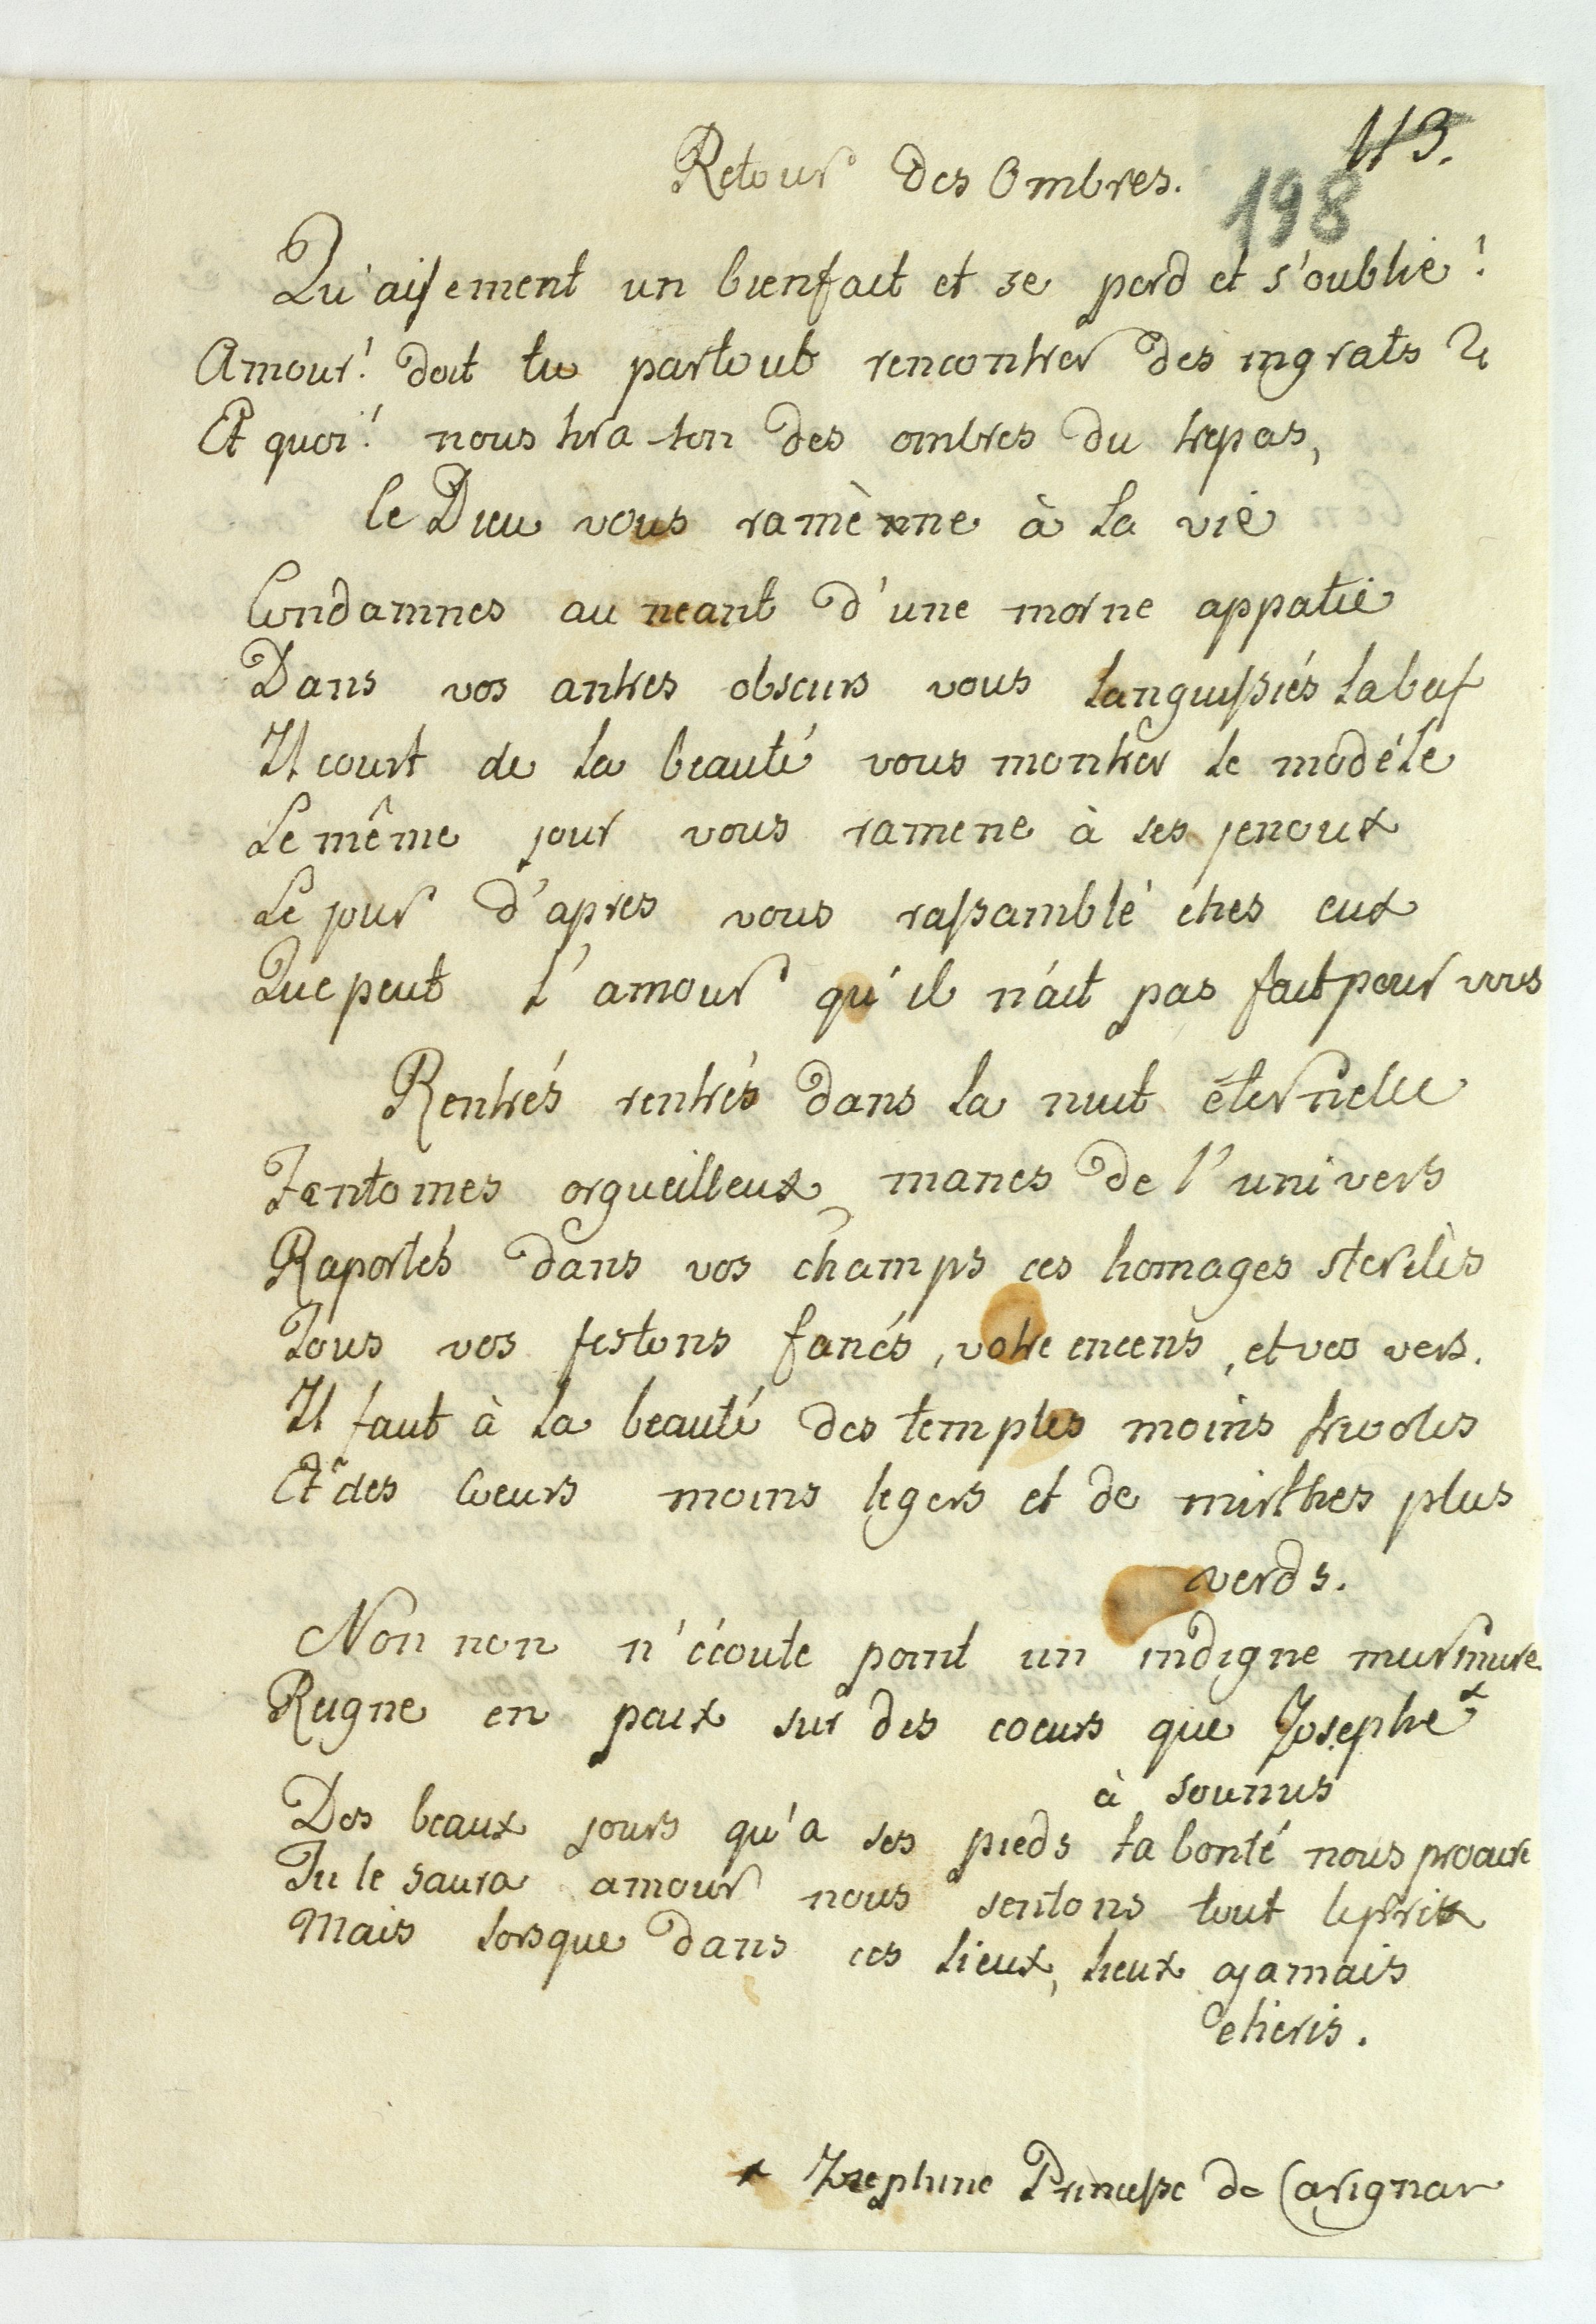 113.
Retour des Ombres.
198
Qu'aisement un bienfait et se perd et s'oublie!
Amour! doit tu partout rencontrer des ingrats?
Et quoi! nous tira-ton des ombres du trepas,
le Dieu vous ramènne à la vie
Condamnes au neant d'une morne appatie
Dans vos antres obscurs vous languissiés
Il court de la beauté vous montrer le modéle
Le même jour vous ramene à ses jenoux
Le jour d'apres vous rassamblé ches eux
Que peut l'amour qu'il n'ait pas fait pour vous
Rentrés rentrés dans la nuit éternelle
Fantomes orgueilleux, manes de l'univers
Raportés dans vos champs ces homages steriles
Tous vos festons fanés, votre encens, et vos vers.
Il faut à la beauté des temples moins frivoles
Et des Coeurs moins legers et de mirthes plus
verds.
Non non n'écoute point un indigne murmure
Reigne en paix sur des coeurs que Josephe *
à soumis
Des beaux jours qu'a ses pieds ta bonté nous procure
Tu le saura amour nous sentons tout le prix
Mais lorsque dans ces lieux, lieux ajamais
cheris.
* Josephine Princesse de Carignan